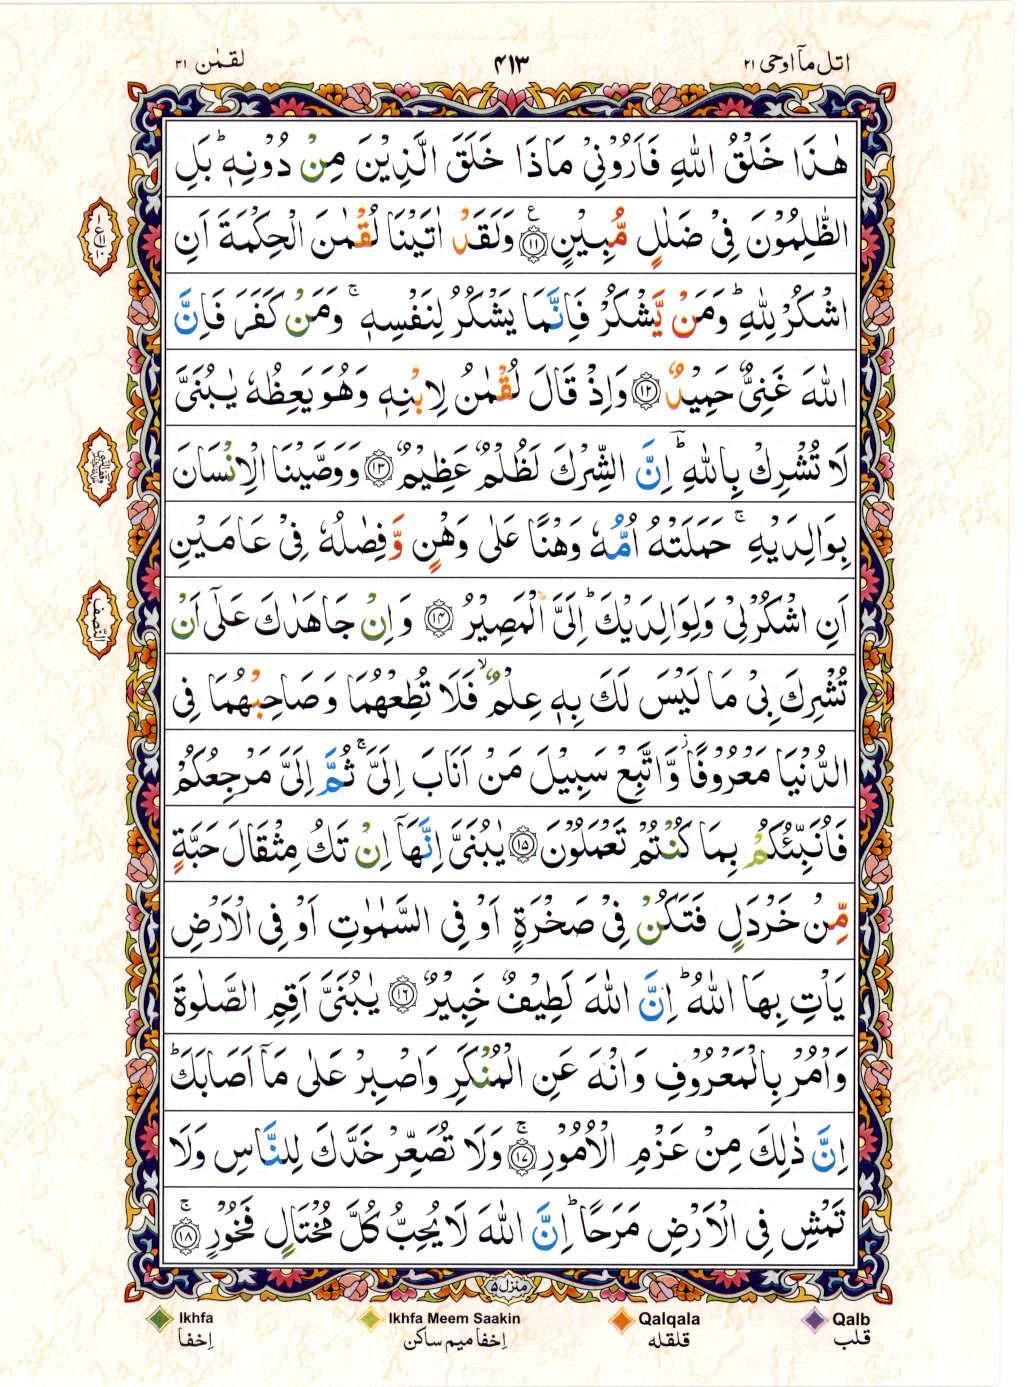 اتل ما اوحی ۲۱
۴۱۳
لقمٰن ۳۱
هٰذَا خَلْقُ اللّٰهِ فَاَرُوْنِیْ مَاذَا خَلَقَ الَّذِیْنَ مِنْ دُوْنِهٖ ؕ بَلِ
الظّٰلِمُوْنَ فِیْ ضَلٰلٍ مُّبِیْنٍ ۧ ﴿۱۱﴾ وَلَقَدْ اٰتَیْنَا لُقْمٰنَ الْحِكْمَةَ اَنِ
اشْكُرْ لِلّٰهِ ؕ وَمَنْ یَّشْكُرْ فَاِنَّمَا یَشْكُرُ لِنَفْسِهٖ ۚ وَمَنْ كَفَرَ فَاِنَّ
اللّٰهَ غَنِیٌّ حَمِیْدٌ ﴿۱۲﴾ وَاِذْ قَالَ لُقْمٰنُ لِابْنِهٖ وَهُوَ یَعِظُهٗ یٰبُنَیَّ
لَا تُشْرِكْ بِاللّٰهِ ؕ اِنَّ الشِّرْكَ لَظُلْمٌ عَظِیْمٌ ﴿۱۳﴾ وَوَصَّیْنَا الْاِنْسَانَ
بِوَالِدَیْهِ ۚ حَمَلَتْهُ اُمُّهٗ وَهْنًا عَلٰی وَهْنٍ وَّفِصٰلُهٗ فِیْ عَامَیْنِ
اَنِ اشْكُرْ لِیْ وَلِوَالِدَیْكَ ؕ اِلَیَّ الْمَصِیْرُ ﴿۱۴﴾ وَاِنْ جَاهَدٰكَ عَلٰۤی اَنْ
النصف
تُشْرِكَ بِیْ مَا لَیْسَ لَكَ بِهٖ عِلْمٌ ۙ فَلَا تُطِعْهُمَا وَصَاحِبْهُمَا فِی
الدُّنْیَا مَعْرُوْفًا ؗ وَّاتَّبِعْ سَبِیْلَ مَنْ اَنَابَ اِلَیَّ ۚ ثُمَّ اِلَیَّ مَرْجِعُكُمْ
فَاُنَبِّئُكُمْ بِمَا كُنْتُمْ تَعْمَلُوْنَ ﴿۱۵﴾ یٰبُنَیَّ اِنَّهَاۤ اِنْ تَكُ مِثْقَالَ حَبَّةٍ
مِّنْ خَرْدَلٍ فَتَكُنْ فِیْ صَخْرَةٍ اَوْ فِی السَّمٰوٰتِ اَوْ فِی الْاَرْضِ
یَاْتِ بِهَا اللّٰهُ ؕ اِنَّ اللّٰهَ لَطِیْفٌ خَبِیْرٌ ﴿۱۶﴾ یٰبُنَیَّ اَقِمِ الصَّلٰوةَ
وَاْمُرْ بِالْمَعْرُوْفِ وَانْهَ عَنِ الْمُنْكَرِ وَاصْبِرْ عَلٰی مَاۤ اَصَابَكَ ؕ
اِنَّ ذٰلِكَ مِنْ عَزْمِ الْاُمُوْرِ ۚ ﴿۱۷﴾ وَلَا تُصَعِّرْ خَدَّكَ لِلنَّاسِ وَلَا
تَمْشِ فِی الْاَرْضِ مَرَحًا ؕ اِنَّ اللّٰهَ لَا یُحِبُّ كُلَّ مُخْتَالٍ فَخُوْرٍ ۚ ﴿۱۸﴾
منزل ۵
Ikhfa Ikhfa Meem Saakin Qalqala Qalb
اِخفا اِخفا میم ساکن قلقله قلب